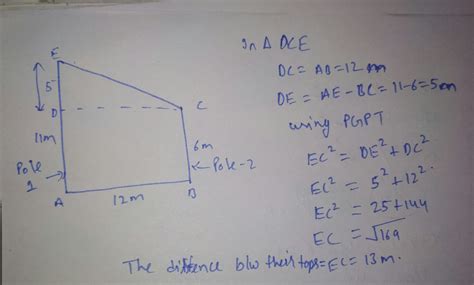 E
5
D
C
11m
6m
Pole
1
Pole-2
A
12m
B
In Δ DCE
DC = AB = 12 m
DE = AE - BC = 11-6 = 5m
using PGPT
EC² = DE² + DC²
EC² = 5² + 12²
EC² = 25 + 144
EC = √169
The distence b/w their tops = EC = 13 m.